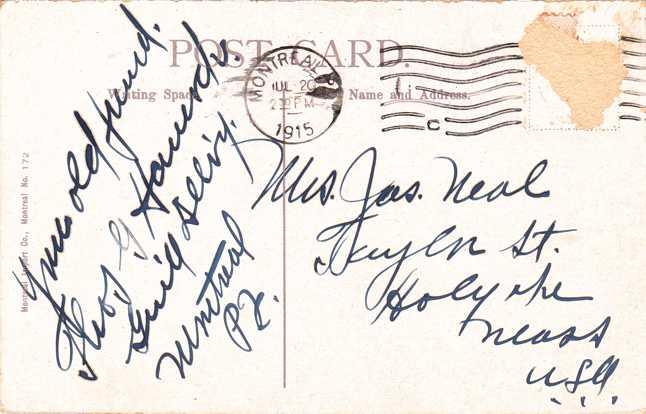 POST CARD.
Writing Space
Name and Address.
MONTREAL
JUL 20
1915
C
Montreal Import Co., Montreal No. 172
Your old friend.
Thos G
Genl Deliv'y.
Montreal
P.Q.
Mrs. Jas. Neal
Taylor St.
Holyoke
Mass
USA